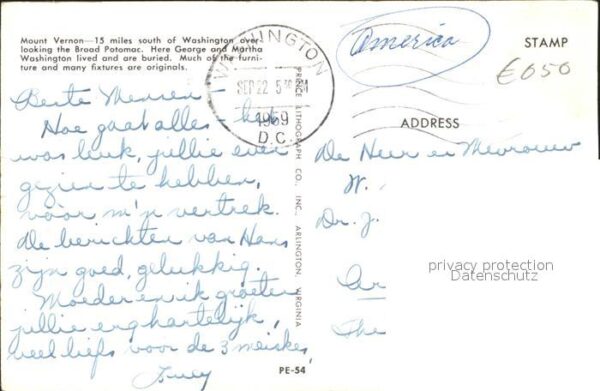 Mount Vernon—15 miles south of Washington over-
looking the Broad Potomac. Here George and Martha
Washington lived and are buried. Much of the furni-
ture and many fixtures are originals.
WASHINGTON
SEP 22 5 PM
1969
D.C.
America
STAMP
€050
ADDRESS
Beste Mensen —
Hoe gaat alles – het
was leuk, jullie even
gezien te hebben,
vóór m'n vertrek.
De berichten van Hans
zijn goed, gelukkig.
Moeder en ik groeten
jullie erg hartelijk,
veel liefs voor de 3 meiskes,
PRINCE LITHOGRAPH CO., INC., ARLINGTON, VIRGINIA
De Heer en Mevrouw
W.
Dr. J.
privacy protection
Datenschutz
The
PE-54